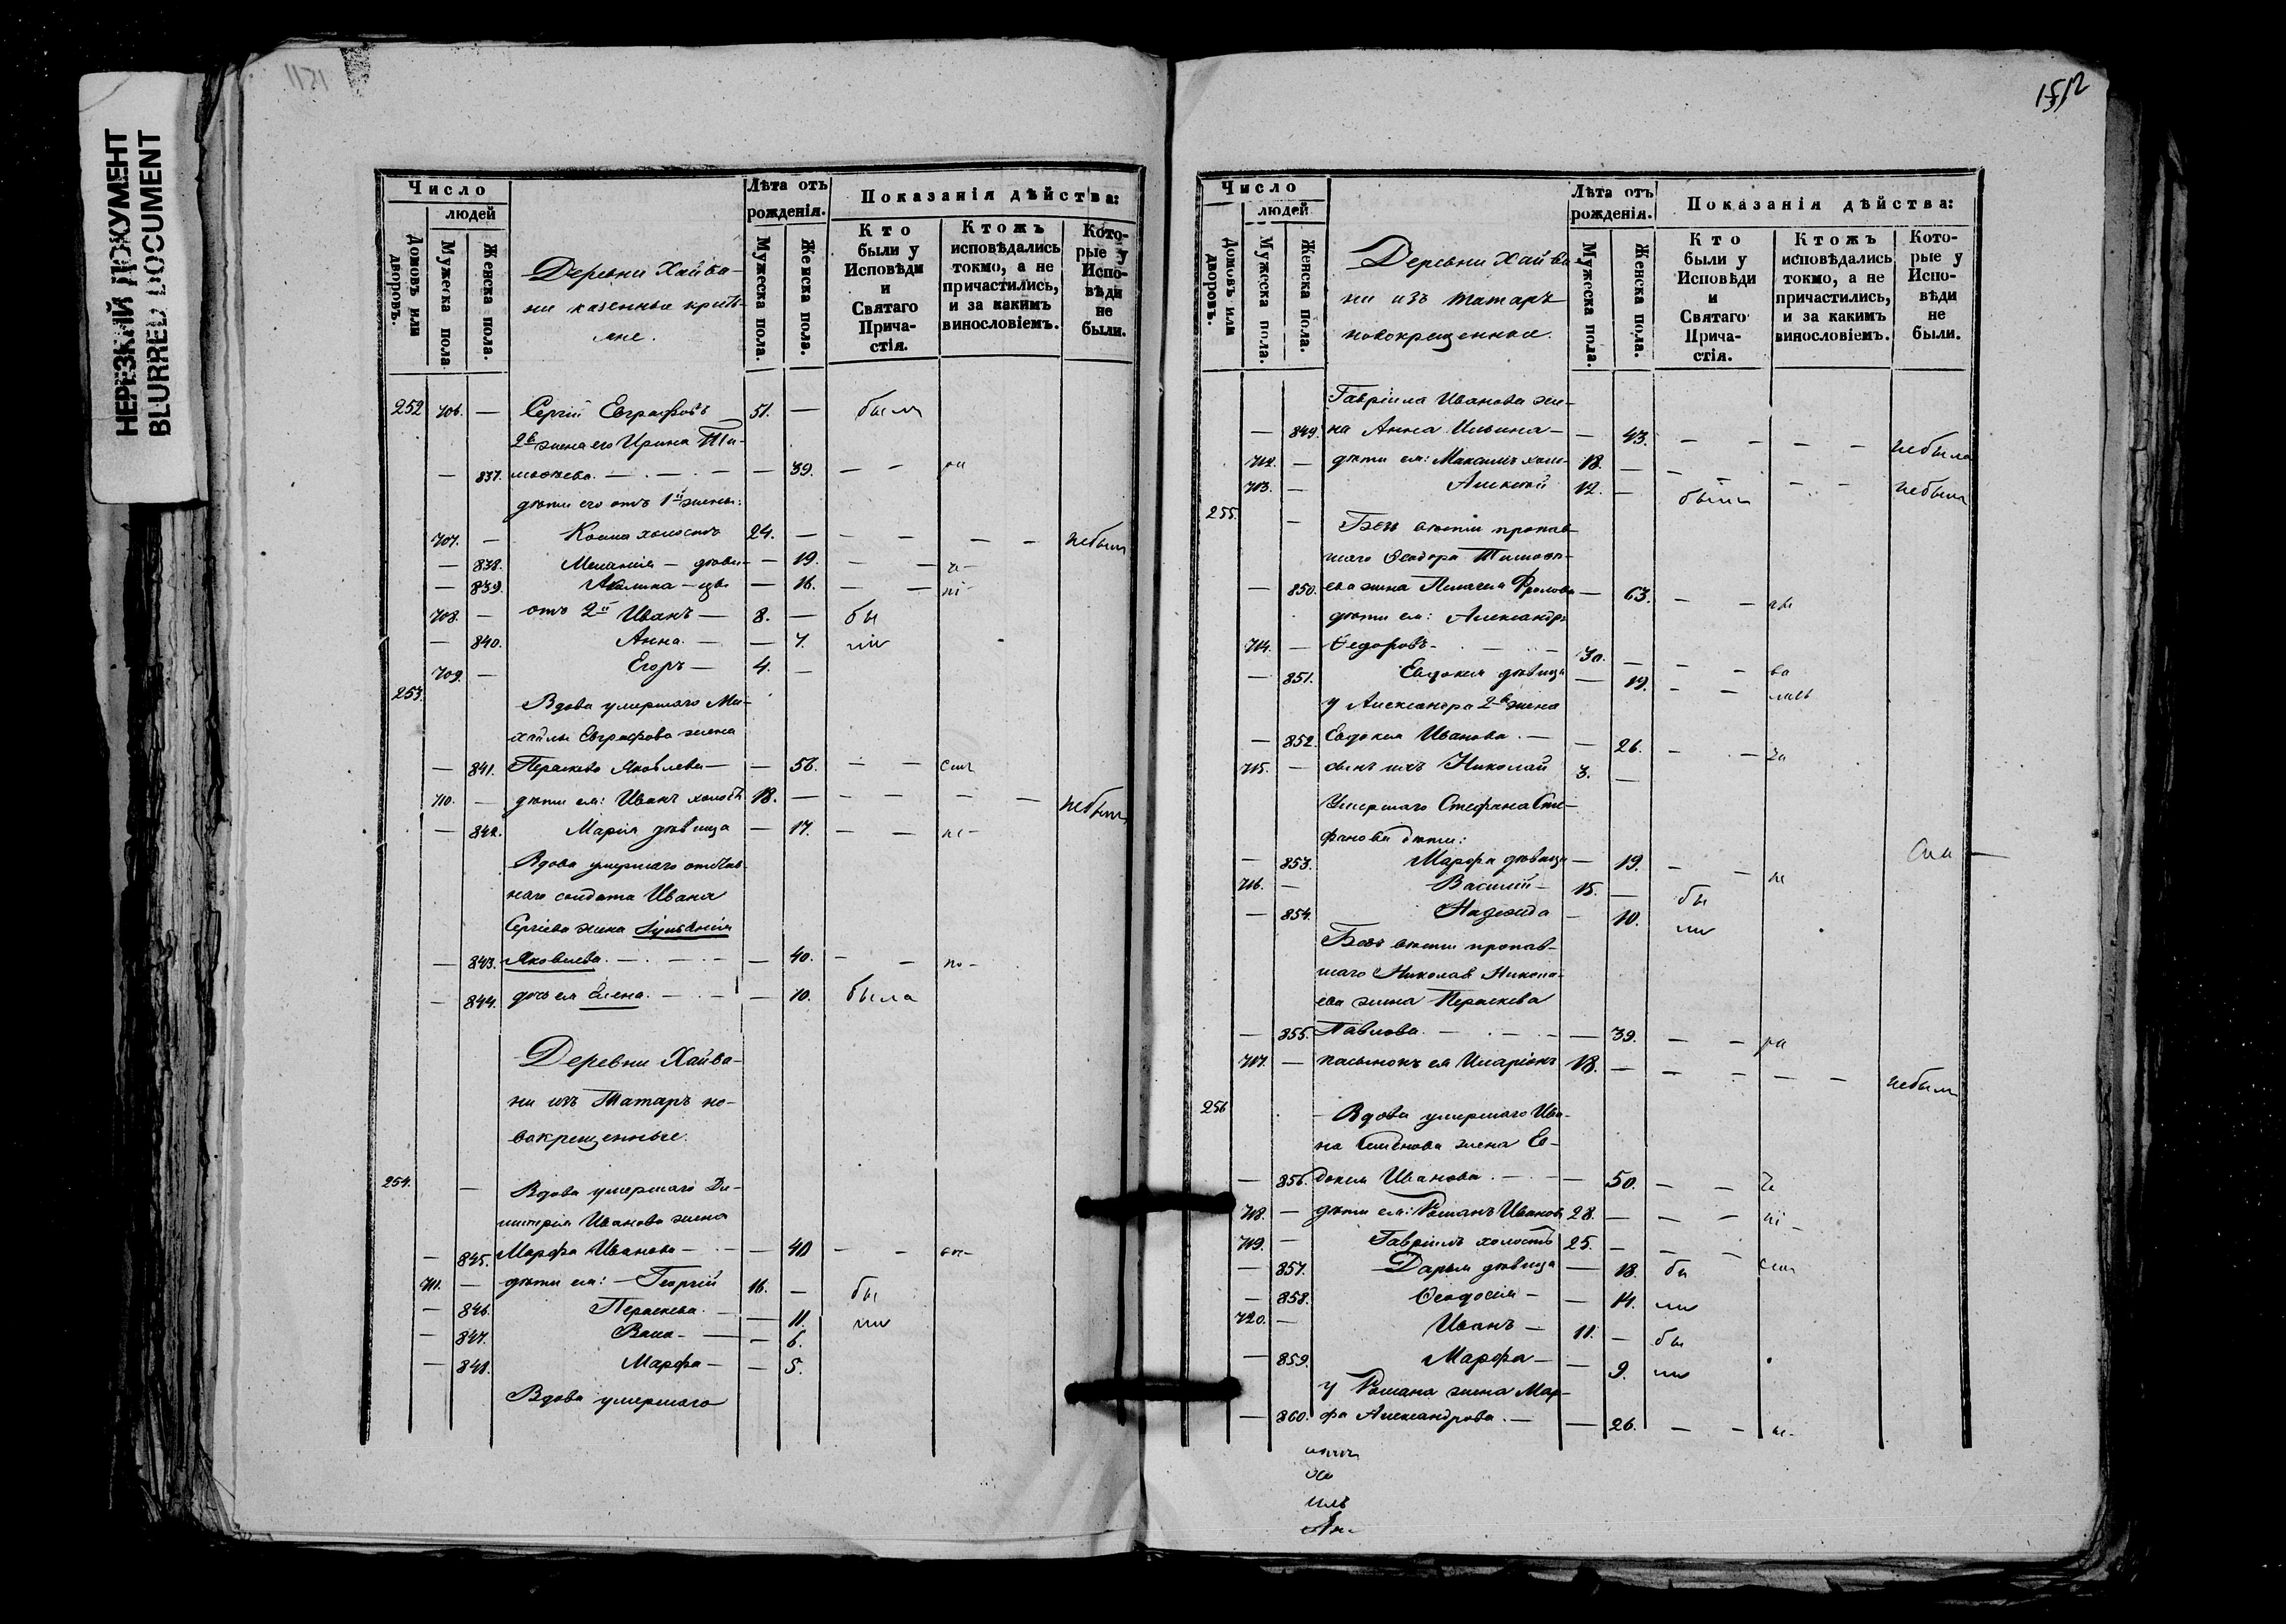 НЕРЕЗКИЙ ДОКУМЕНТ
BLURRED DOCUMENT
1151
Число
людей
Домовъ или дворовъ.
Мужеска пола
Женска пола.
Деревни Хайва-
ни казенные кресть-
яне.
Лѣта отъ рожденія.
Мужеска пола.
Женска пола.
Показанія дѣйства:
Кто были у Исповѣди и Святаго Прича-стія.
Ктожъ исповѣдались токмо, а не причастились, и за какимъ винословіемъ.
Кото-рые у Испо-вѣди не были.
252 706. — Сергій Евграфовъ 51. — были
2я жена его Ирина Ти-
— 837. мофѣева. — . — . — — 39. — —
дѣти его отъ 1й жены:
707. — Косма холостъ 24. — — — — — небылъ
— 838. Меланія — дѣви- — 19. — —
— 839. Акилина — цы — 16. — —
708. — отъ 2й Иванъ — 8. — бы
— 840. Анна. — — 7. ли
709. — Егоръ — 4. —
253. Вдова умершаго Ми-
хайлы Евграфова жена
— 841. Параскева Яковлева — — 56. — —
710. — дѣти ея: Иванъ холостъ 18. — — — — — небылъ
— 842. Марія дѣвица — 17. — —
Вдова умершаго отстав-
наго солдата Ивана
Сергіева жена
— 843. Яковлева. — . — . — — 40. — —
— 844. дочь ея Елена. — . — — 10. была
Деревни Хайва-
ни изъ Татаръ но-
вокрещенные.
254. — Вдова умершаго Ди-
митрія Иванова жена
— 845. Марфа Иванова — . — — 40 — —
711. — дѣти ея: — Георгій 16. — бы
— 846. Параскева. — — 11. ли
— 847. Васса — — 6.
— 848. Марфа — — 5.
Вдова умершаго
1512
Число
людей
Домовъ или дворовъ.
Мужеска пола.
Женска пола.
Деревни Хайва-
ни изъ татаръ
новокрещенные.
Лѣта отъ рожденія.
Мужеска пола.
Женска пола.
Показанія дѣйства:
Кто были у Исповѣди и Святаго Прича-стія.
Ктожъ исповѣдались токмо, а не причастились, и за какимъ винословіемъ.
Кото-рые у Испо-вѣди не были.
Гавріила Иванова же-
— 849. на Анна Ильина — — 43. — — — — небыла
712. — дѣти ея: Максимъ холос- 18. — — — — небылъ
713. — Алексѣй 12. — были
255. — Безъ вѣсти пропав-
шаго Ѳеодора Тимоѳѣ-
— 850. ева жена Пелагея Фролова — 63. — —
дѣти ея: Александръ
714. — Ѳедоровъ — . — 30. — — —
— 851. Евдокія дѣвица — 19. — —
у Александра 2я жена
— 852. Евдокія Иванова. — — 26. — —
715. — сынъ ихъ Николай 3. —
Умершаго Стефана Сте-
фанова дѣти:
— 853. Марфа дѣвица — 19. — —
716. — Василій — 15. — бы
— 854. Надежда — 10. ли
Безъ вѣсти пропав-
шаго Николая Никола-
ева жена Параскева
— 855. Павлова. — . — — 39. — —
717. — пасынокъ ея Иларіонъ 18. — — — — — небылъ
256 Вдова умершаго Ива-
на Семенова жена Ев-
— 856. докія Иванова. — . — — 50. — —
718. — дѣти ея: Романъ Ивановъ 28. — — —
719. — Гавріилъ холостъ 25. — — —
— 857. Дарья дѣвица — 18. бы
— 858. Ѳеодосія — — 14. ли
720. — Иванъ — 11. — бы
— 859. Марфа — — 9. ли
у Романа жена Мар-
— 860. фа Александрова. — — 26. — —